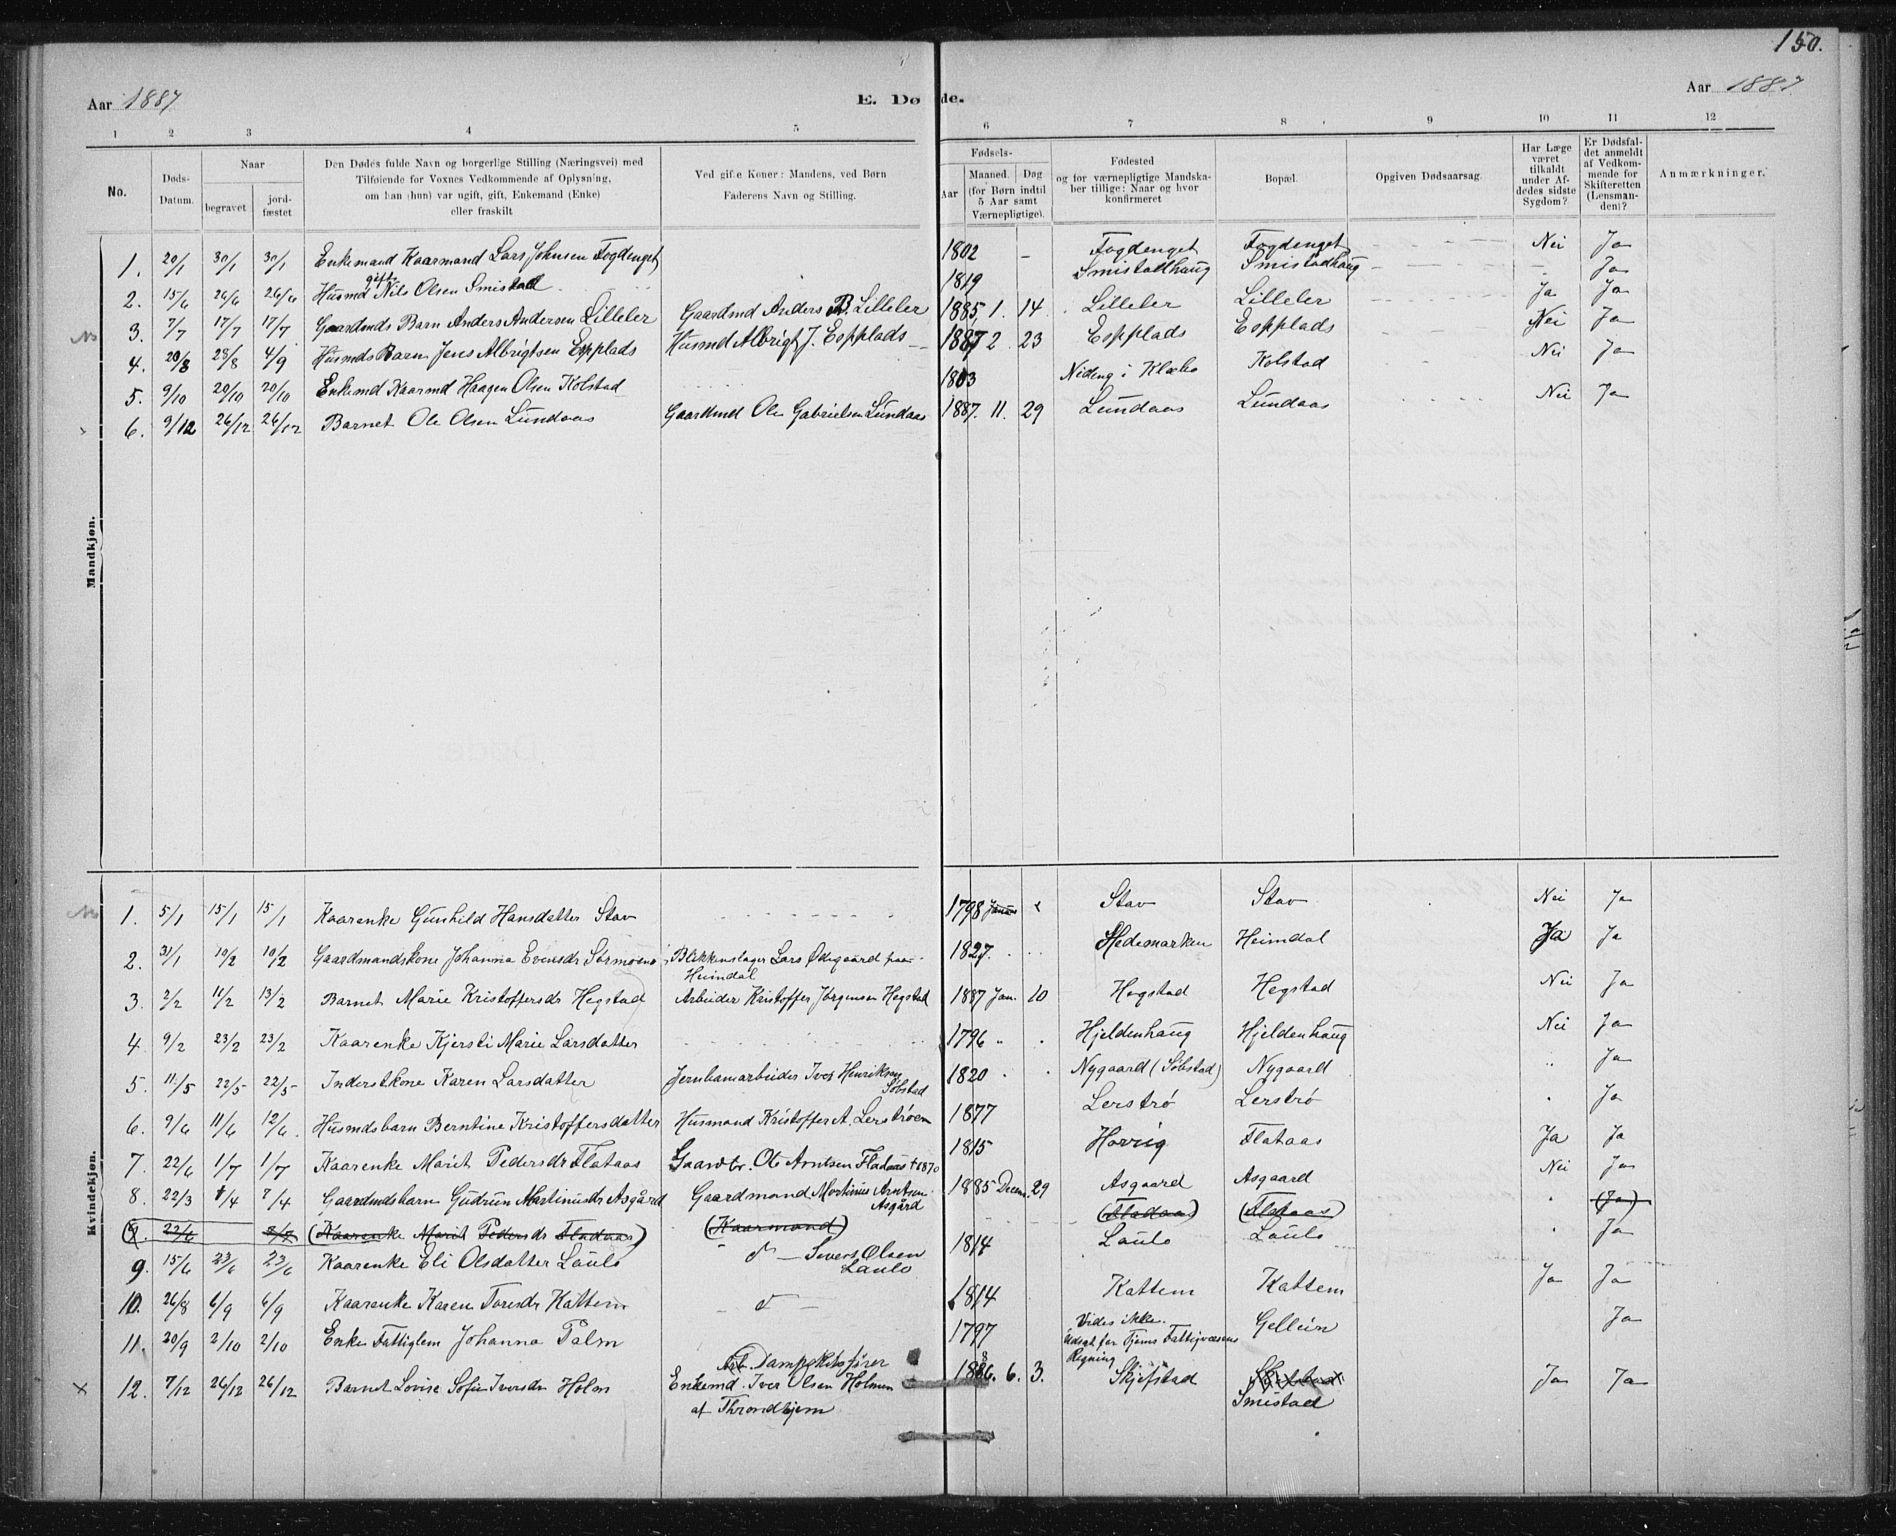 150.
Aar 1887 E. Dø de. Aar 1887
1 2 3 4 5 6 7 8 9 10 11 12
No. Døds-Datum. Naar begravet jordfæstet Den Dødes fulde Navn og borgerlige Stilling (Næringsvei) med Tilføiende for Voxnes Vedkommende af Oplysning, om han (hun) var ugift, gift, Enkemand (Enke) eller fraskilt Ved gifte Koner: Mandens, ved Børn Faderens Navn og Stilling. Fødsels- Aar Maaned. Døg (for Børn indtil 5 Aar samt Værnepligtige). Fødested og for værnepligtige Mandskaber tillige: Naar og hvor konfirmeret Bopæl. Opgiven Dødsaarsag. Har Læge været tilkaldt under Afdødes sidste Sygdom? Er Dødsfaldet anmeldt af Vedkommende for Skifteretten (Lensmanden)? Anmærkninger.
Mandkjøn.
1. 20/1 30/1 30/1 Enkemand Kaarmand Lars Johnsen Fogdenget 1802 - Fogdenget Fogdenget Nei Ja
2. 15/6 26/6 26/6 Husmd gift Nils Olsen Smistad 1819 Smistadhaug Smistadhaug - Ja
3. 7/7 17/7 17/7 Gaardmds Barn Anders Andersen Lilleler Gaardmd Anders B. Lilleler 1885. 1. 14 Lilleler Lilleler Ja Ja
4. 20/8 28/8 4/9 Husmds Barn Jens Albrigtsen Espplads Husmd Albrigt J. Espplads 1887 2 23 Espplads Espplads Nei Ja
5. 9/10 20/10 20/10 Enkemd Kaarmd Haagen Olsen Kolstad 1803 Nideng i Klæbo Kolstad Nei Ja
6. 9/12 26/12 26/12 Barnet Ole Olsen Lundaas Gaardmd Ole Gabrielsen Lundaas 1887. 11. 29 Lundaas Lundaas Nei Ja
Kvindekjøn.
1. 5/1 15/1 15/1 Kaarenke Gunhild Hansdatter Stav 1798 Stav Stav Nei Ja
2. 31/1 10/2 10/2 Gaardmandskone Johanna Evensdr Blikkenslager Lars Ødegaard paa Heimdal 1827. Hedemarken Heimdal Ja Ja
3. 2/2 11/2 13/2 Barnet Marie Kristoffersdr Hegstad Arbeider Kristoffer Jørgensen Hegstad 1887 Jan. 10 Hegstad Hegstad Nei Ja
4. 9/2 23/2 23/2 Kaarenke Kjersti Marie Larsdatter 1796 Hjeldenhaug Hjeldenhaug Nei Ja
5. 11/5 22/5 22/5 Inderstkone Karen Larsdatter Jernbanarbeider Iver Henriksen Søbstad 1820 Nygaard (Søbstad) Nygaard " Ja
6. 9/6 11/6 12/6. Husmdsbarn Berntine Kristoffersdatter Husmand Kristoffer A. Lerstrøen 1877 Lerstrø Lerstrø " Ja
7. 22/6 1/7 1/7 Kaarenke Marit Pedersdr Flataas Gaardbr. Ole Arntsen Flataas † 1870 1815 Hovrig Flataas Ja Ja
8. 22/3 1/4 7/4 Gaardmdsbarn Gudrun Martinusdr Asgård Gaardmand Martinus Arntsen Asgård 1885 Decem. 29 Asgaard Asgaard Nei Ja
(9. 22/6 (Kaarenke Marit Pedersdr Fladaas) (Kaarmand) (Fladaas) (Flataas) " (Ja)
9. 15/6 23/6 23/6 Kaarenke Eli Olsdatter Laulo " d° - Sivert Olsen Laulo 1814 Laulo Laulo " Ja
10. 26/8 6/9 6/9 Kaarenke Karen Toresdr Kattem - d° - 1814 Kattem Kattem Ja Ja
11. 20/9 2/10 2/10 Enke Fattiglem Johanna Palm 1797 Vides ikke. Udsat for Tjems Fattigvæsens Regning Gellein Ja
12. 7/12 26/12 26/12 Barnet Lovise Sofie Iversdr Holm Enkemd. Iver Olsen Holmen af Throndhjem 1886. 6. 3. Skjefstad Smistad Ja Ja